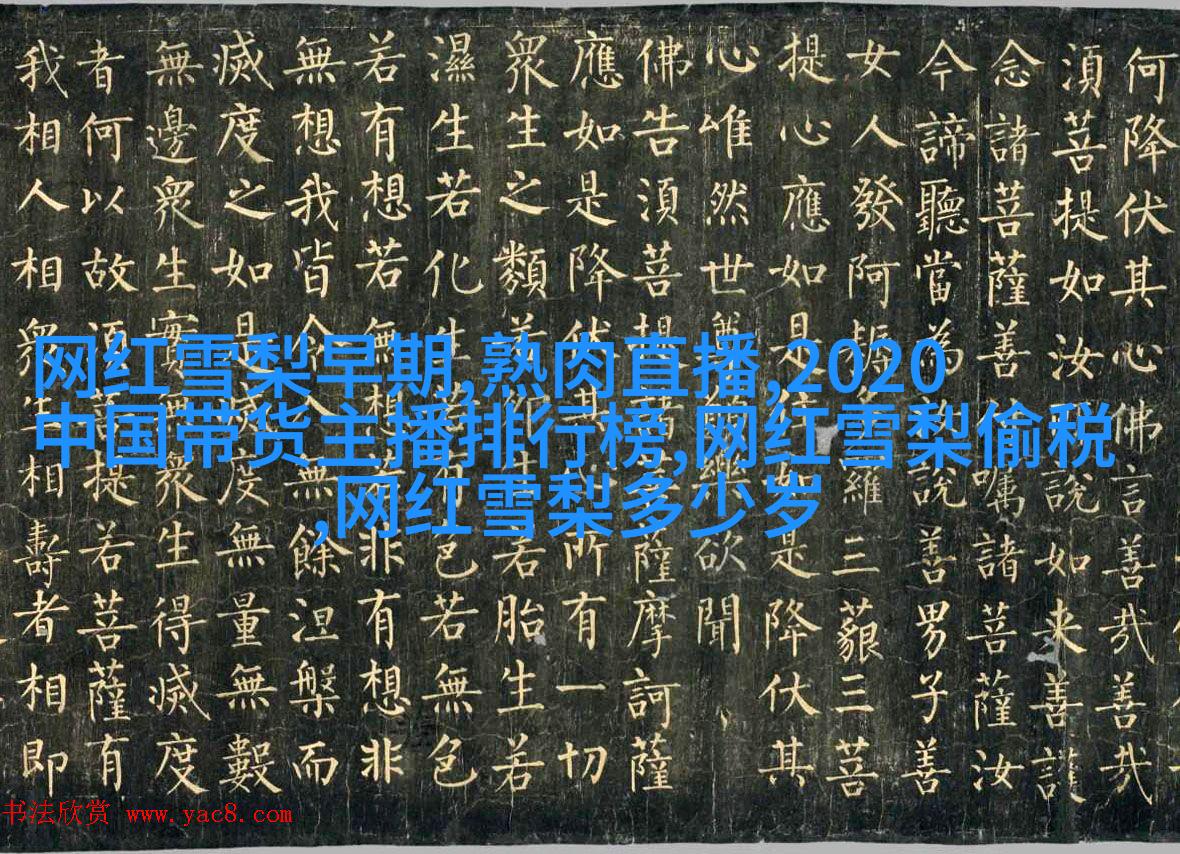 网红雪梨早期,熟肉直播,2020
中国带货主播排行榜,网红雪梨偷税
,网红雪梨多少岁
何降伏其心佛言善哉善哉
湏菩提如汝說如来善護
念諸菩薩善嘱諸菩薩汝
今諦聽當為說善男子善
女人發阿耨羅三藐三菩
提心應如是如是降伏其
心唯然世尊樂欲聞
佛告湏菩提菩薩摩訶薩
應如是降伏其所有一切
衆生之類若生若胎生若
濕生若化生若有色若無色
若有想若無想若非有想非
無想我皆令入無餘涅槃而
滅度之如是滅度無量無數
無邊衆生實無衆生得滅度
者何以故湏菩提若菩薩有
我相人相衆生相壽者相即
书法欣赏 www.yac8.com